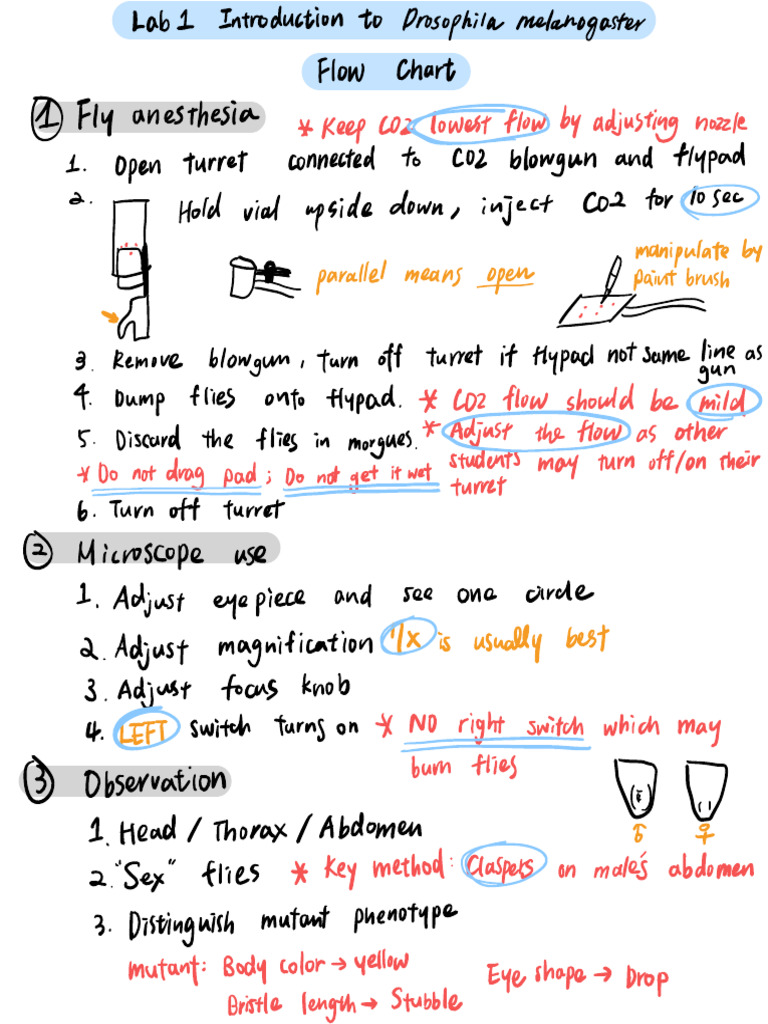 Lab 1 Introduction to Drosophila melanogaster
Flow Chart
① Fly anesthesia
* Keep CO2 lowest flow by adjusting nozzle
1. Open turret connected to CO2 blowgun and flypad
2. Hold vial upside down, inject CO2 for 10 sec
parallel means open
manipulate by
paint brush
3. Remove blowgun, turn off turret if flypad not same line as
gun
4. Dump flies onto flypad. * CO2 flow should be mild
5. Discard the flies in morgues. * Adjust the flow as other
students may turn off/on their
turret
* Do not drag pad; Do not get it wet
6. Turn off turret
② Microscope use
1. Adjust eyepiece and see one circle
2. Adjust magnification 1x is usually best
3. Adjust focus knob
4. LEFT switch turns on * NO right switch which may
burn flies
③ Observation
1. Head / Thorax / Abdomen
♂ ♀
2. "Sex" flies * Key method: Claspers on male's abdomen
3. Distinguish mutant phenotype
mutant: Body color → yellow
Eye shape → Drop
Bristle length → Stubble